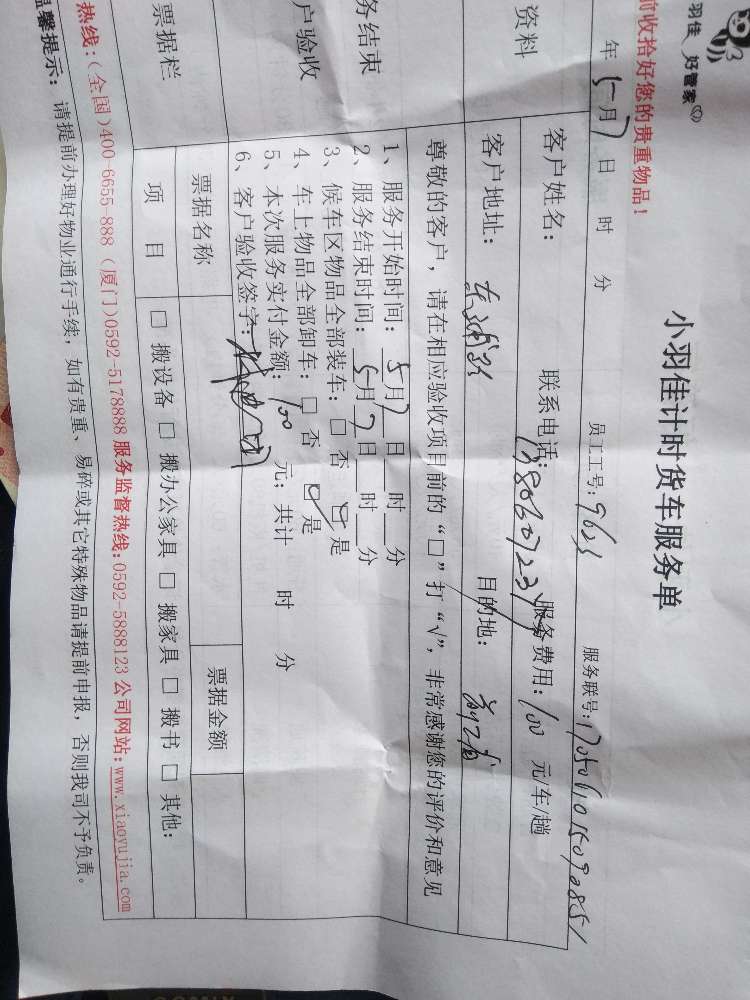 羽佳 好管家
前收拾好您的贵重物品!
小羽佳计时货车服务单
年 5 月 7 日 时 分 员工工号: 服务联号:
资料
客户姓名: 联系电话: 服务费用: 100 元/车/趟
客户地址: 目的地:
尊敬的客户,请在相应验收项目前的“□”打“√”,非常感谢您的评价和意见
务结束
户验收
1、服务开始时间: 5 月 7 日 时 分
2、服务结束时间: 5 月 7 日 时 分
3、候车区物品全部装车: □ 否 ☑ 是
4、车上物品全部卸车: □ 否 ☑ 是
5、本次服务实付金额: 100 元; 共计 时 分
6、客户验收签字:
票据栏
票据名称 票据金额
项 目 □ 搬设备 □ 搬办公家具 □ 搬家具 □ 搬书 □ 其他:
热线:(全国)400-6655-888 (厦门)0592-5178888 服务监督热线:0592-5888123 公司网站:www.xiaoyujia.com
温馨提示: 请提前办理好物业通行手续,如有贵重、易碎或其它特殊物品请提前申报,否则我司不予负责。